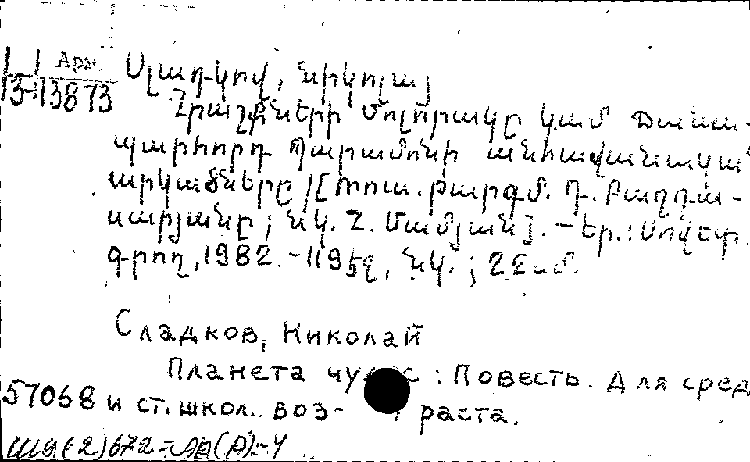 Арм.
13-13873
Սլադկով, Նիկոլայ
Հրաշքների մոլորակը կամ Ճանա-
պարհորդ Պարամոնի անհավանական
արկածները /[Ռուս. թարգմ. Դ. Բաղդա-
սարյանը; նկ. Հ. Մամյան]. - Եր.: Սովետ.
գրող, 1982. - 119 էջ, նկ.; 22 սմ.
Сладков, Николай
Планета чудес : Повесть. Для сред
57068 и ст. школ. воз- раста.